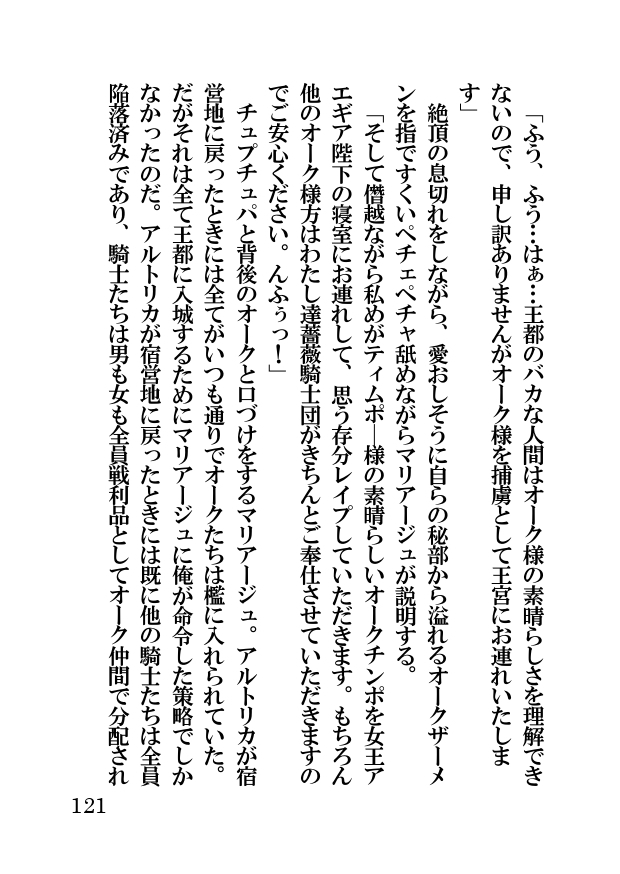 「ふう、ふう…はぁ…王都のバカな人間はオーク様の素晴らしさを理解でき
ないので、申し訳ありませんがオーク様を捕虜として王宮にお連れいたしま
す」
絶頂の息切れをしながら、愛おしそうに自らの秘部から溢れるオークザーメ
ンを指ですくいペチェペチャ舐めながらマリアージュが説明する。
「そして僭越ながら私めがティムポ―様の素晴らしいオークチンポを女王ア
エギア陛下の寝室にお連れして、思う存分レイプしていただきます。もちろん
他のオーク様方はわたし達薔薇騎士団がきちんとご奉仕させていただきますの
でご安心ください。んふぅっ！」
チュプチュパと背後のオークと口づけをするマリアージュ。アルトリカが宿
営地に戻ったときには全てがいつも通りでオークたちは檻に入れられていた。
だがそれは全て王都に入城するためにマリアージュに俺が命令した策略でしか
なかったのだ。アルトリカが宿営地に戻ったときには既に他の騎士たちは全員
陥落済みであり、騎士たちは男も女も全員戦利品としてオーク仲間で分配され
121